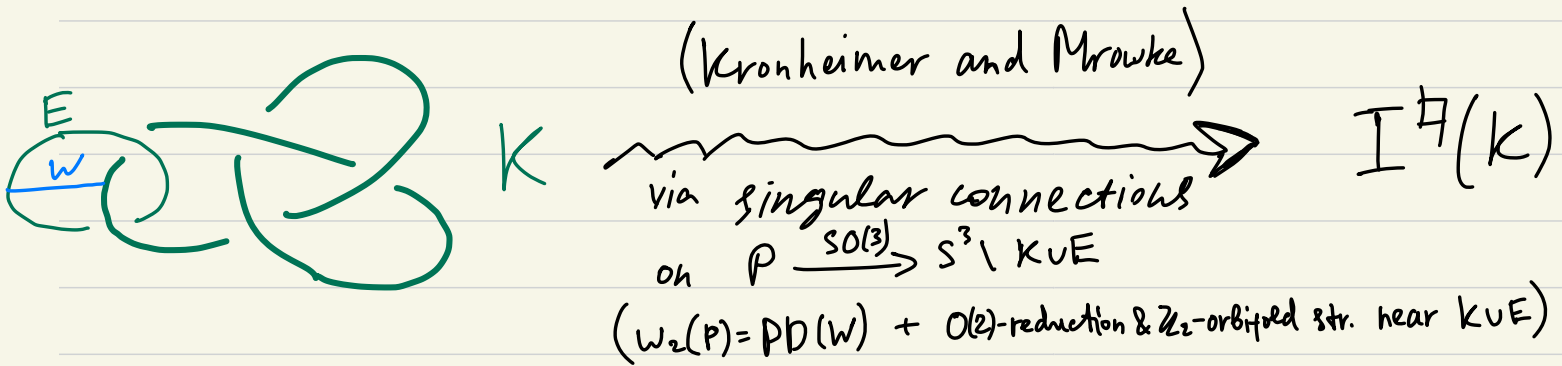 (Kronheimer and Mrowka)
E
W
K
I^♮(K)
via singular connections
on P \xrightarrow{SO(3)} S^3 \ K∪E
(w_2(P)=PD(W) + O(2)-reduction & ℤ_2-orbifold str. near K∪E)